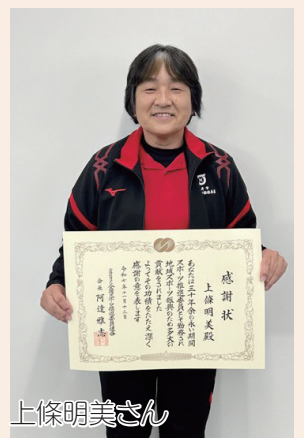 感謝状
上條明美殿
あなたは三十年余の永い期間
スポーツ推進委員として勤務され
地域スポーツ振興のため多大の
貢献をされました
よってその功績をたたえ深く
感謝の意を表します
令和七年十一月十三日
会長 阿達雅志
上條明美さん